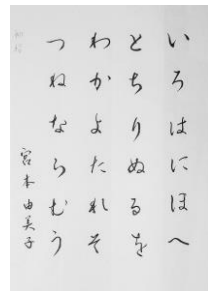 いろはにほへ
とちりぬるを
わかよたれそ
つねならむう
宮本由美子